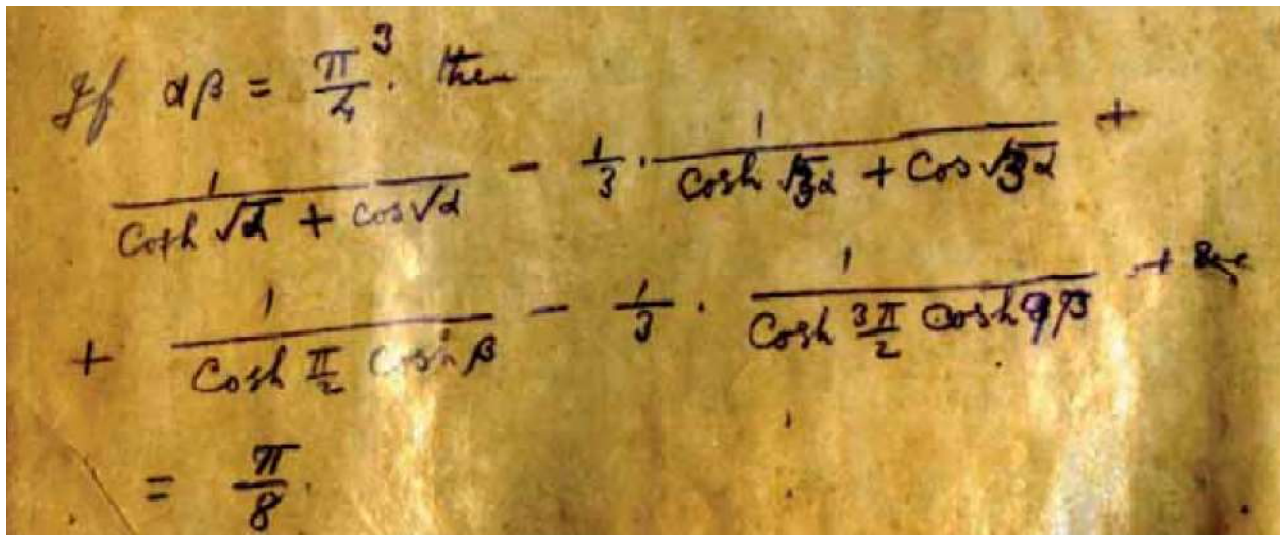 If αβ = π³/4. then
1/(Cosh √α + cos √α) − 1/3 · 1/(Cosh √3α + Cos √3α) +
+ 1/(Cosh π/2 Cosh β) − 1/3 · 1/(Cosh 3π/2 Cosh 9β) + &c
= π/8.